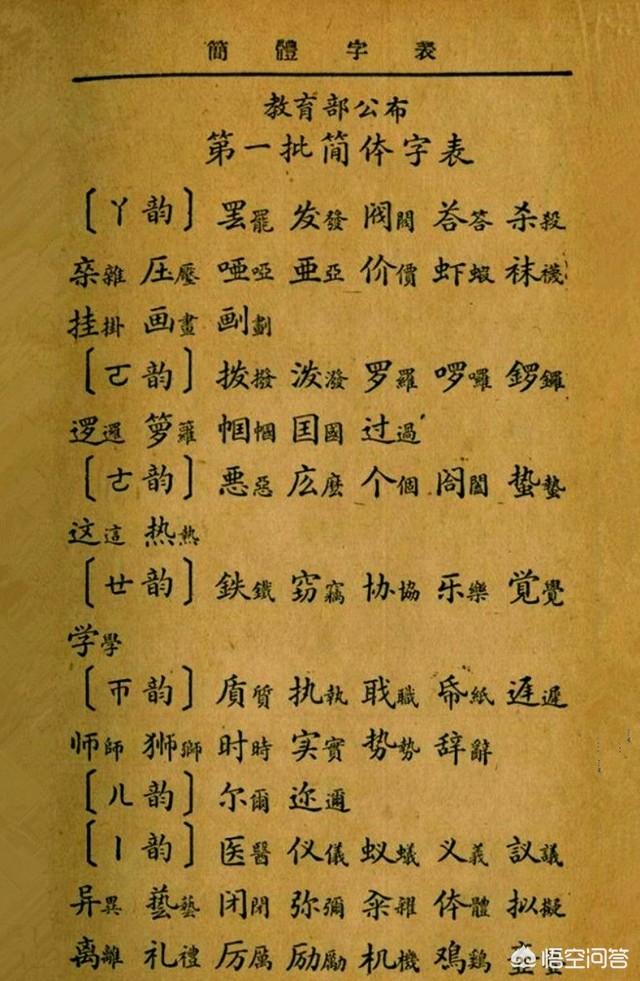 簡體字表
教育部公布
第一批简体字表
〔ㄚ韵〕 罢罷 发發 阀閥 荅答 杀殺
杂雜 压壓 哑啞 亚亞 价價 虾蝦 袜襪
挂掛 画畫 劃
〔ㄛ韵〕 拨撥 泼潑 罗羅 啰囉 锣鑼
逻邏 箩籮 帼幗 国國 过過
〔ㄜ韵〕 恶惡 庅麼 个個 阁閣 蛰蟄
这這 热熱
〔ㄝ韵〕 鉄鐵 窃竊 协協 乐樂 觉覺
学學
〔ㄭ韵〕 质質 执執 职職 帋紙 迟遲
师師 狮獅 时時 实實 势勢 辞辭
〔ㄦ韵〕 尔爾 迩邇
〔ㄧ韵〕 医醫 仪儀 蚁蟻 义義 议議
异異 艺藝 闭閉 弥彌 籴糴 体體 拟擬
离離 礼禮 厉厲 励勵 机機 鸡鷄
悟空问答